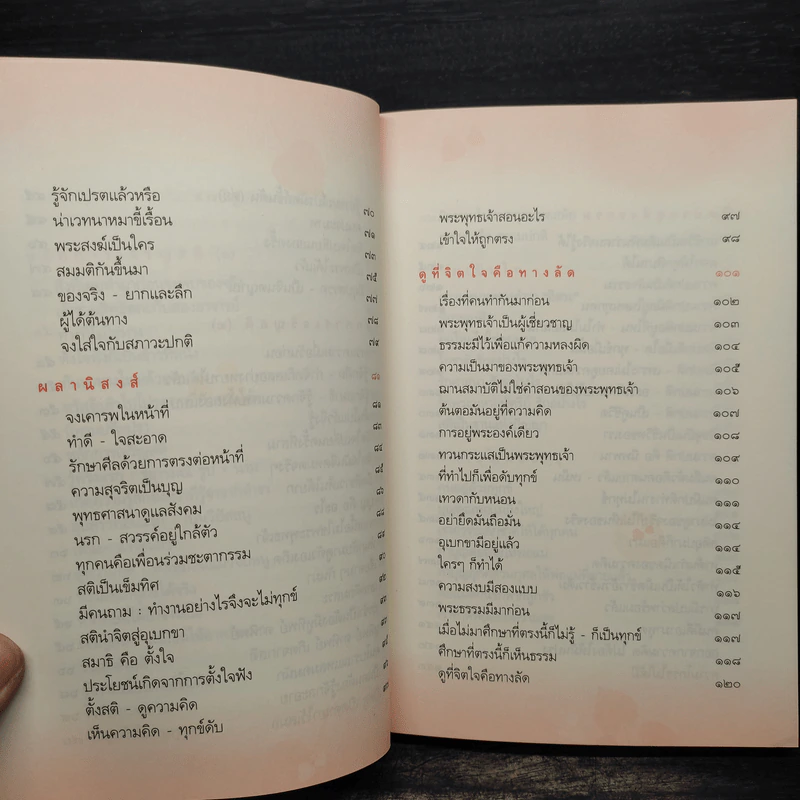 รู้จักเปรตแล้วหรือ ๗๐
น่าเวทนาหมาขี้เรื้อน ๗๑
พระสงฆ์เป็นใคร ๗๓
สมมติกันขึ้นมา ๗๕
ของจริง - ยากและลึก ๗๗
ผู้ได้ต้นทาง ๗๘
จงใส่ใจกับสภาวะปกติ ๗๙
ผลานิสงส์ ๘๑
จงเคารพในหน้าที่ ๘๑
ทำดี - ใจสะอาด ๘๓
รักษาศีลด้วยการตรงต่อหน้าที่ ๘๔
ความสุจริตเป็นบุญ ๘๕
พุทธศาสนาดูแลสังคม ๘๖
นรก - สวรรค์อยู่ใกล้ตัว
ทุกคนคือเพื่อนร่วมชะตากรรม
สติเป็นเข็มทิศ
มีคนถาม : ทำงานอย่างไรจึงจะไม่ทุกข์
สตินำจิตสู่อุเบกขา
สมาธิ คือ ตั้งใจ
ประโยชน์เกิดจากการตั้งใจฟัง
ตั้งสติ - ดูความคิด
เห็นความคิด - ทุกข์ดับ
พระพุทธเจ้าสอนอะไร ๙๗
เข้าใจให้ถูกตรง ๙๘
ดูที่จิตใจคือทางลัด ๑๐๑
เรื่องที่คนทำกันมาก่อน ๑๐๒
พระพุทธเจ้าเป็นผู้เชี่ยวชาญ ๑๐๓
ธรรมะมีไว้เพื่อแก้ความหลงผิด ๑๐๔
ความเป็นมาของพระพุทธเจ้า ๑๐๕
ฌานสมาบัติไม่ใช่คำสอนของพระพุทธเจ้า ๑๐๖
ต้นตอมันอยู่ที่ความคิด ๑๐๗
การอยู่พระองค์เดียว ๑๐๘
ทวนกระแสเป็นพระพุทธเจ้า ๑๐๙
ที่ทำไปก็เพื่อดับทุกข์ ๑๑๐
เทวดากับหนอน ๑๑๑
อย่ายึดมั่นถือมั่น ๑๑๔
อุเบกขามีอยู่แล้ว ๑๑๔
ใครๆ ก็ทำได้ ๑๑๕
ความสงบมีสองแบบ ๑๑๖
พระธรรมมีมาก่อน ๑๑๗
เมื่อไม่มาศึกษาที่ตรงนี้ก็ไม่รู้ - ก็เป็นทุกข์ ๑๑๗
ศึกษาที่ตรงนี้ก็เห็นธรรม ๑๑๘
ดูที่จิตใจคือทางลัด ๑๒๐